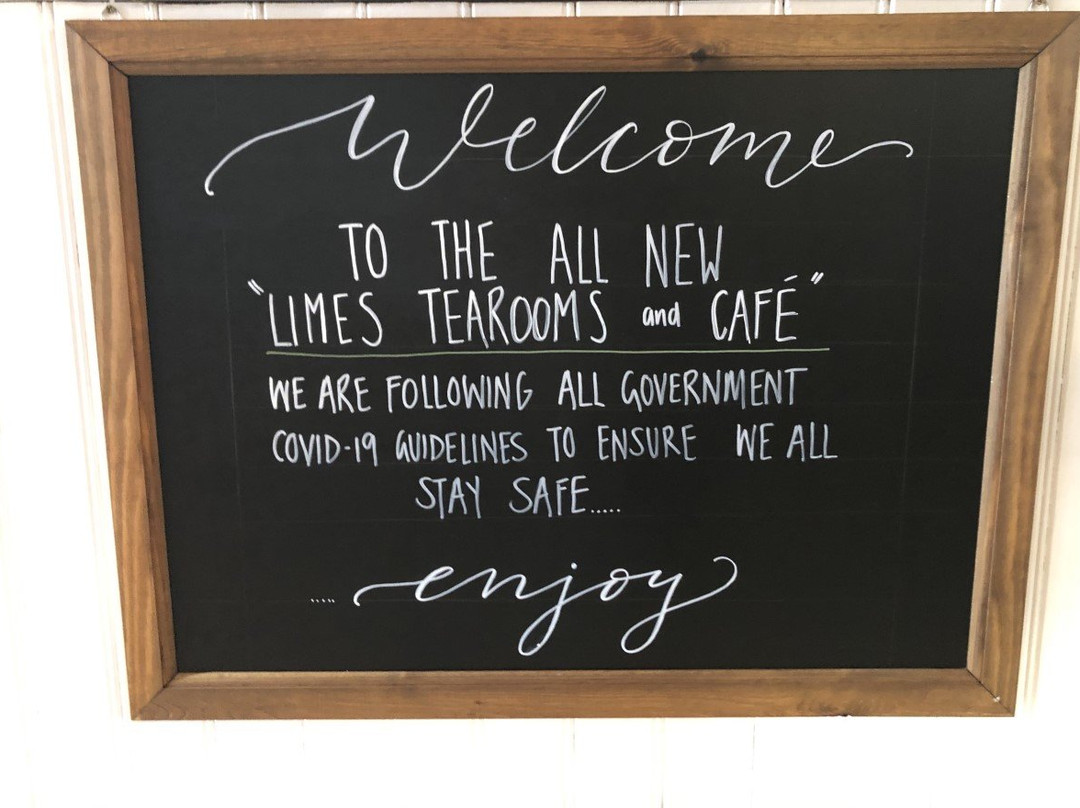 Welcome
TO THE ALL NEW
"LIMES TEAROOMS and CAFÉ"
WE ARE FOLLOWING ALL GOVERNMENT
COVID-19 GUIDELINES TO ENSURE WE ALL
STAY SAFE.....
..... enjoy